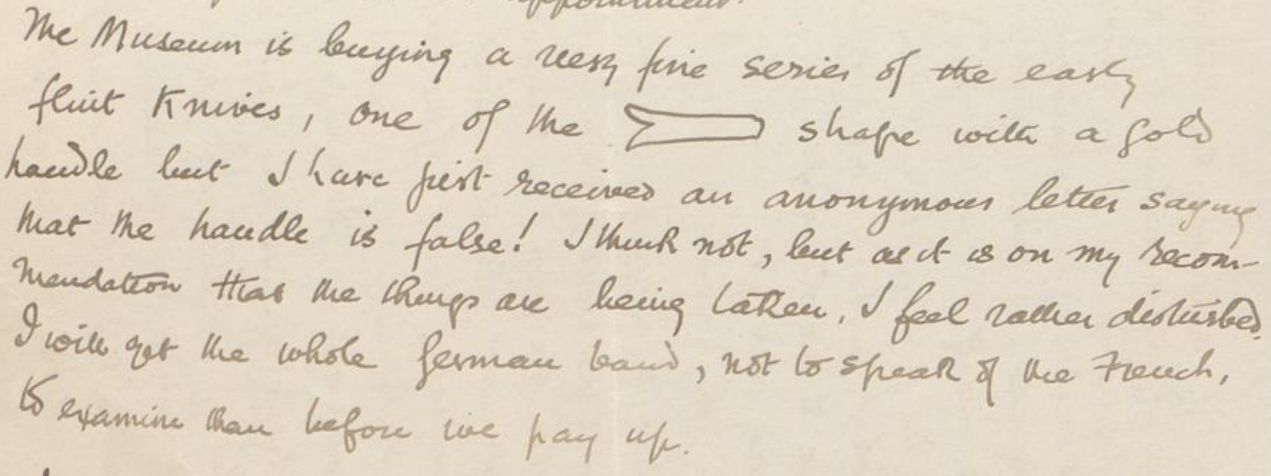 appointment.
The Museum is buying a very fine series of the early
flint Knives, one of the shape with a gold
handle but I have just received an anonymous letter saying
that the handle is false! I think not, but as it is on my recom-
mendation that the things are being taken, I feel rather disturbed.
I will get the whole German band, not to speak of the French,
to examine them before we pay up.